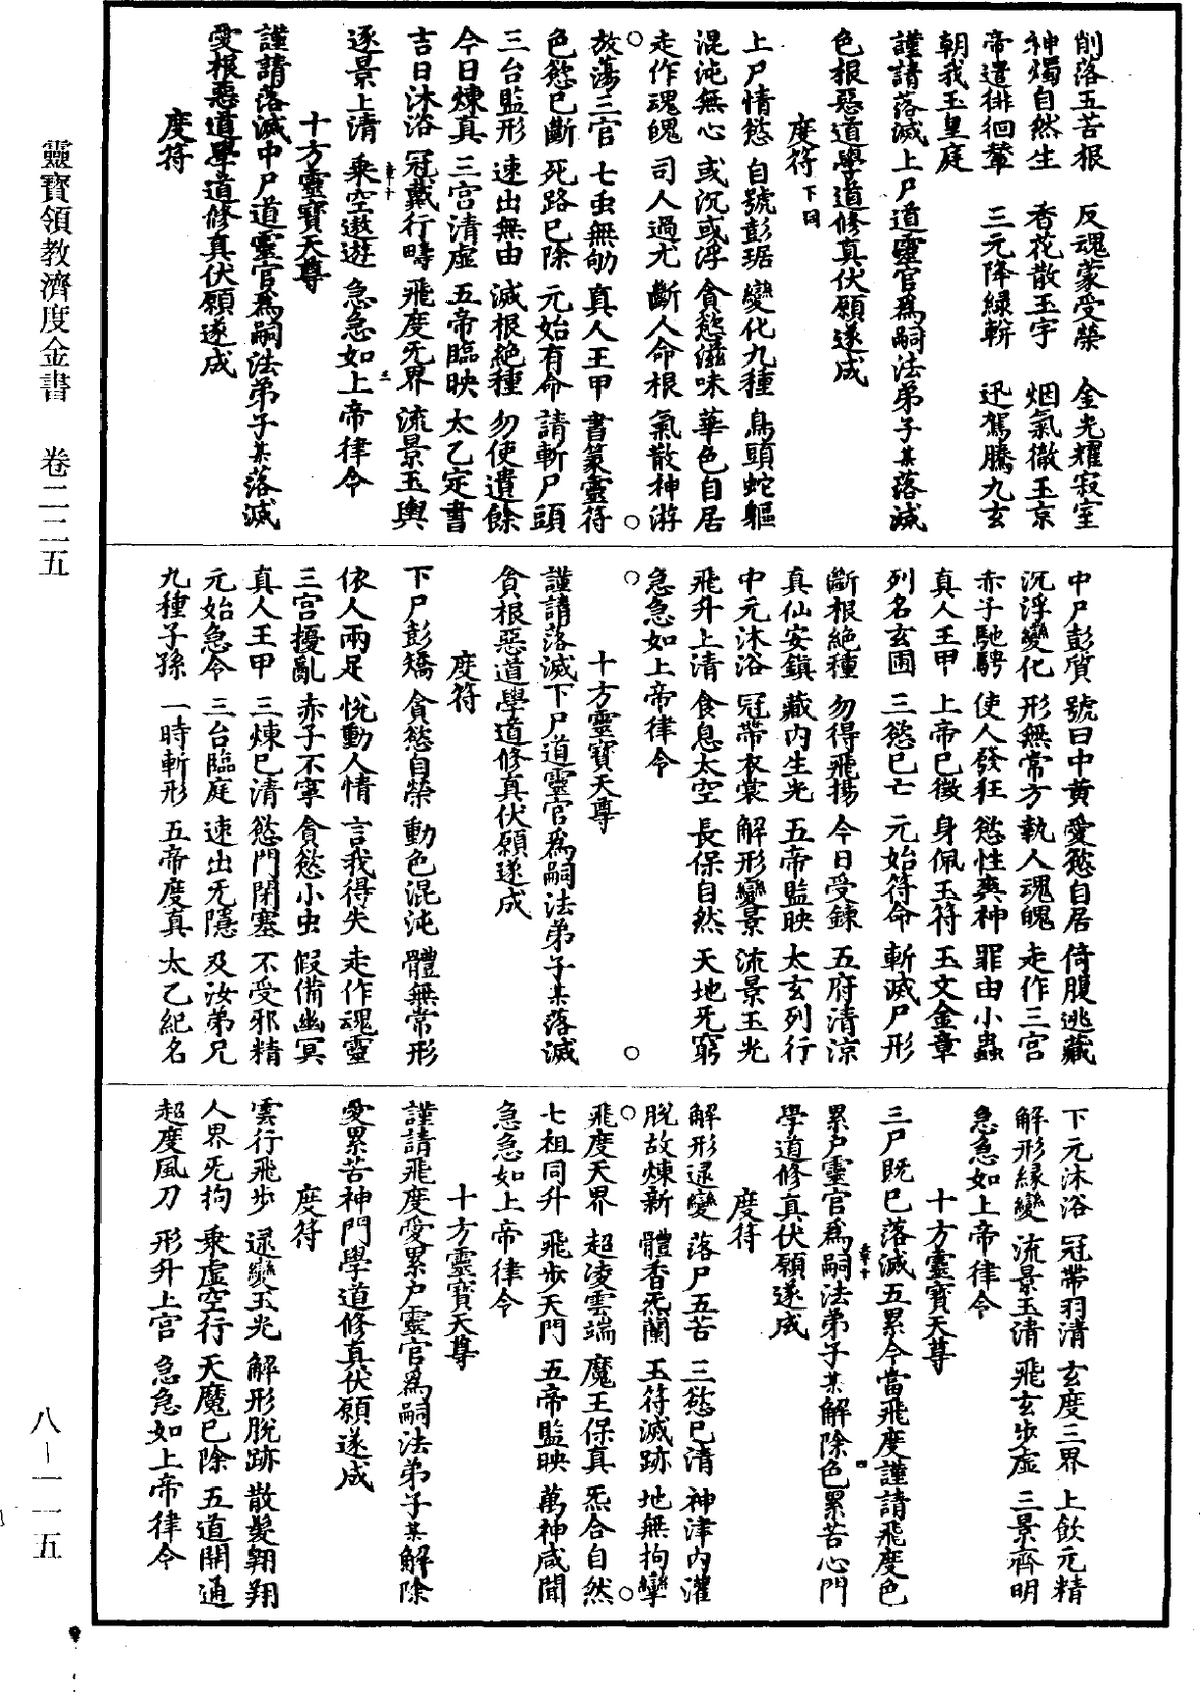 靈寶領教濟度金書　卷二二五
八－一一五
削落五苦根　反魂蒙受榮　金光耀寂室
神燭自然生　香花散玉宇　烟氣徹玉京
帝遣徘徊輦　三元降緑軿　迅駕騰九玄
朝我玉皇庭
謹請落滅上尸道靈官爲嗣法弟子某落滅
色根惡道學道修真伏願遂成
度符下同
上尸情慾　自號彭琚　變化九種　鳥頭蛇軀
混沌無心　或沉或浮　貪慾滋味　華色自居
走作魂魄　司人過尤　斷人命根　氣散神游
放蕩三官　七虫無劬　真人王甲　書篆靈符
色慾已斷　死路已除　元始有命　請斬尸頭
三台監形　速出無由　滅根絶種　勿使遺餘
今日煉真　三宮清虛　五帝臨映　太乙定書
吉日沐浴　冠戴行疇　飛度旡界　流景玉輿
逐景上清　乘空遨遊　急急如上帝律令
十方靈寶天尊
謹請落滅中尸道靈官爲嗣法弟子某落滅
愛根惡道學道修真伏願遂成
度符
中尸彭質　號曰中黄　愛慾自居　倚腹逃藏
沉浮變化　形無常方　執人魂魄　走作三宮
赤子馳騁　使人發狂　慾性喪神　罪由小蟲
真人王甲　上帝已徵　身佩玉符　玉文金章
列名玄圃　三慾已亡　元始符命　斬滅尸形
斷根絶種　勿得飛揚　今日受錬　五府清涼
真仙安鎮　藏内生光　五帝監映　太玄列行
中元沐浴　冠帶衣裳　解形變景　流景玉光
飛升上清　食息太空　長保自然　天地旡窮
急急如上帝律令
十方靈寶天尊
謹請落滅下尸道靈官爲嗣法弟子某落滅
貪根惡道學道修真伏願遂成
度符
下尸彭矯　貪慾自榮　動色混沌　體無常形
依人兩足　悅動人情　言我得失　走作魂靈
三宮擾亂　赤子不寧　貪慾小虫　假備幽冥
真人王甲　三煉已清　慾門閉塞　不受邪精
元始急令　三台臨庭　速出旡隱　及汝弟兄
九種子孫　一時斬形　五帝度真　太乙紀名
下元沐浴　冠帶羽清　玄度三界　上飲元精
解形縁變　流景玉清　飛玄步虛　三景齊明
急急如上帝律令
十方靈寶天尊
三尸既已落滅五累今當飛度謹請飛度色
累户靈官爲嗣法弟子某解除色累苦心門
學道修真伏願遂成
度符
解形遝變　落尸五苦　三慾已清　神津内灌
脱故煉新　體香炁蘭　玉符滅跡　地無拘攣
飛度天界　超凌雲端　魔王保真　炁合自然
七祖同升　飛步天門　五帝監映　萬神咸聞
急急如上帝律令
十方靈寶天尊
謹請飛度愛累户靈官爲嗣法弟子某解除
愛累苦神門學道修真伏願遂成
度符
雲行飛步　遝變玉光　解形脱跡　散髮翱翔
人界旡拘　乘虛空行　天魔已除　五道開通
超度風刀　形升上宮　急急如上帝律令